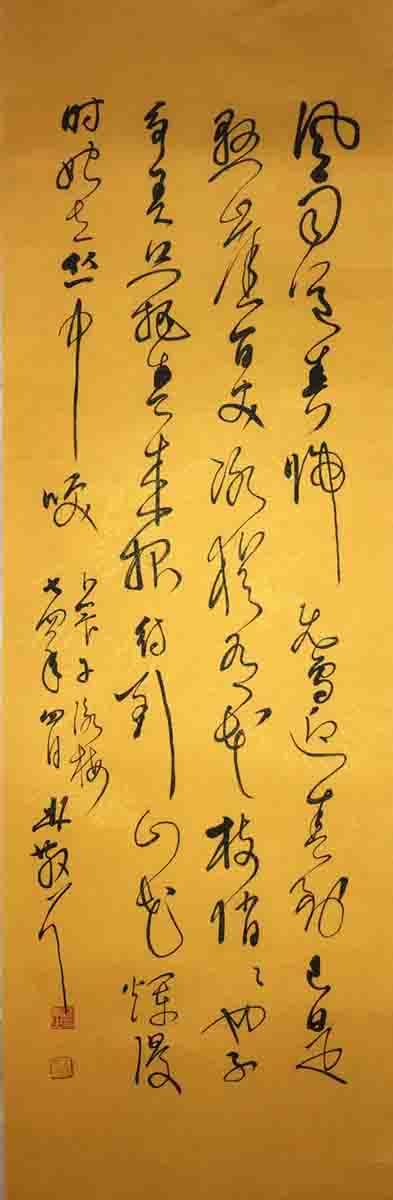 风雨送春归飞雪迎春到已是
悬崖百丈冰犹有花枝俏〻也不
争春只把春来报待到山花烂漫
时她在丛中笑
卜算子咏梅
七四年四月林散耳